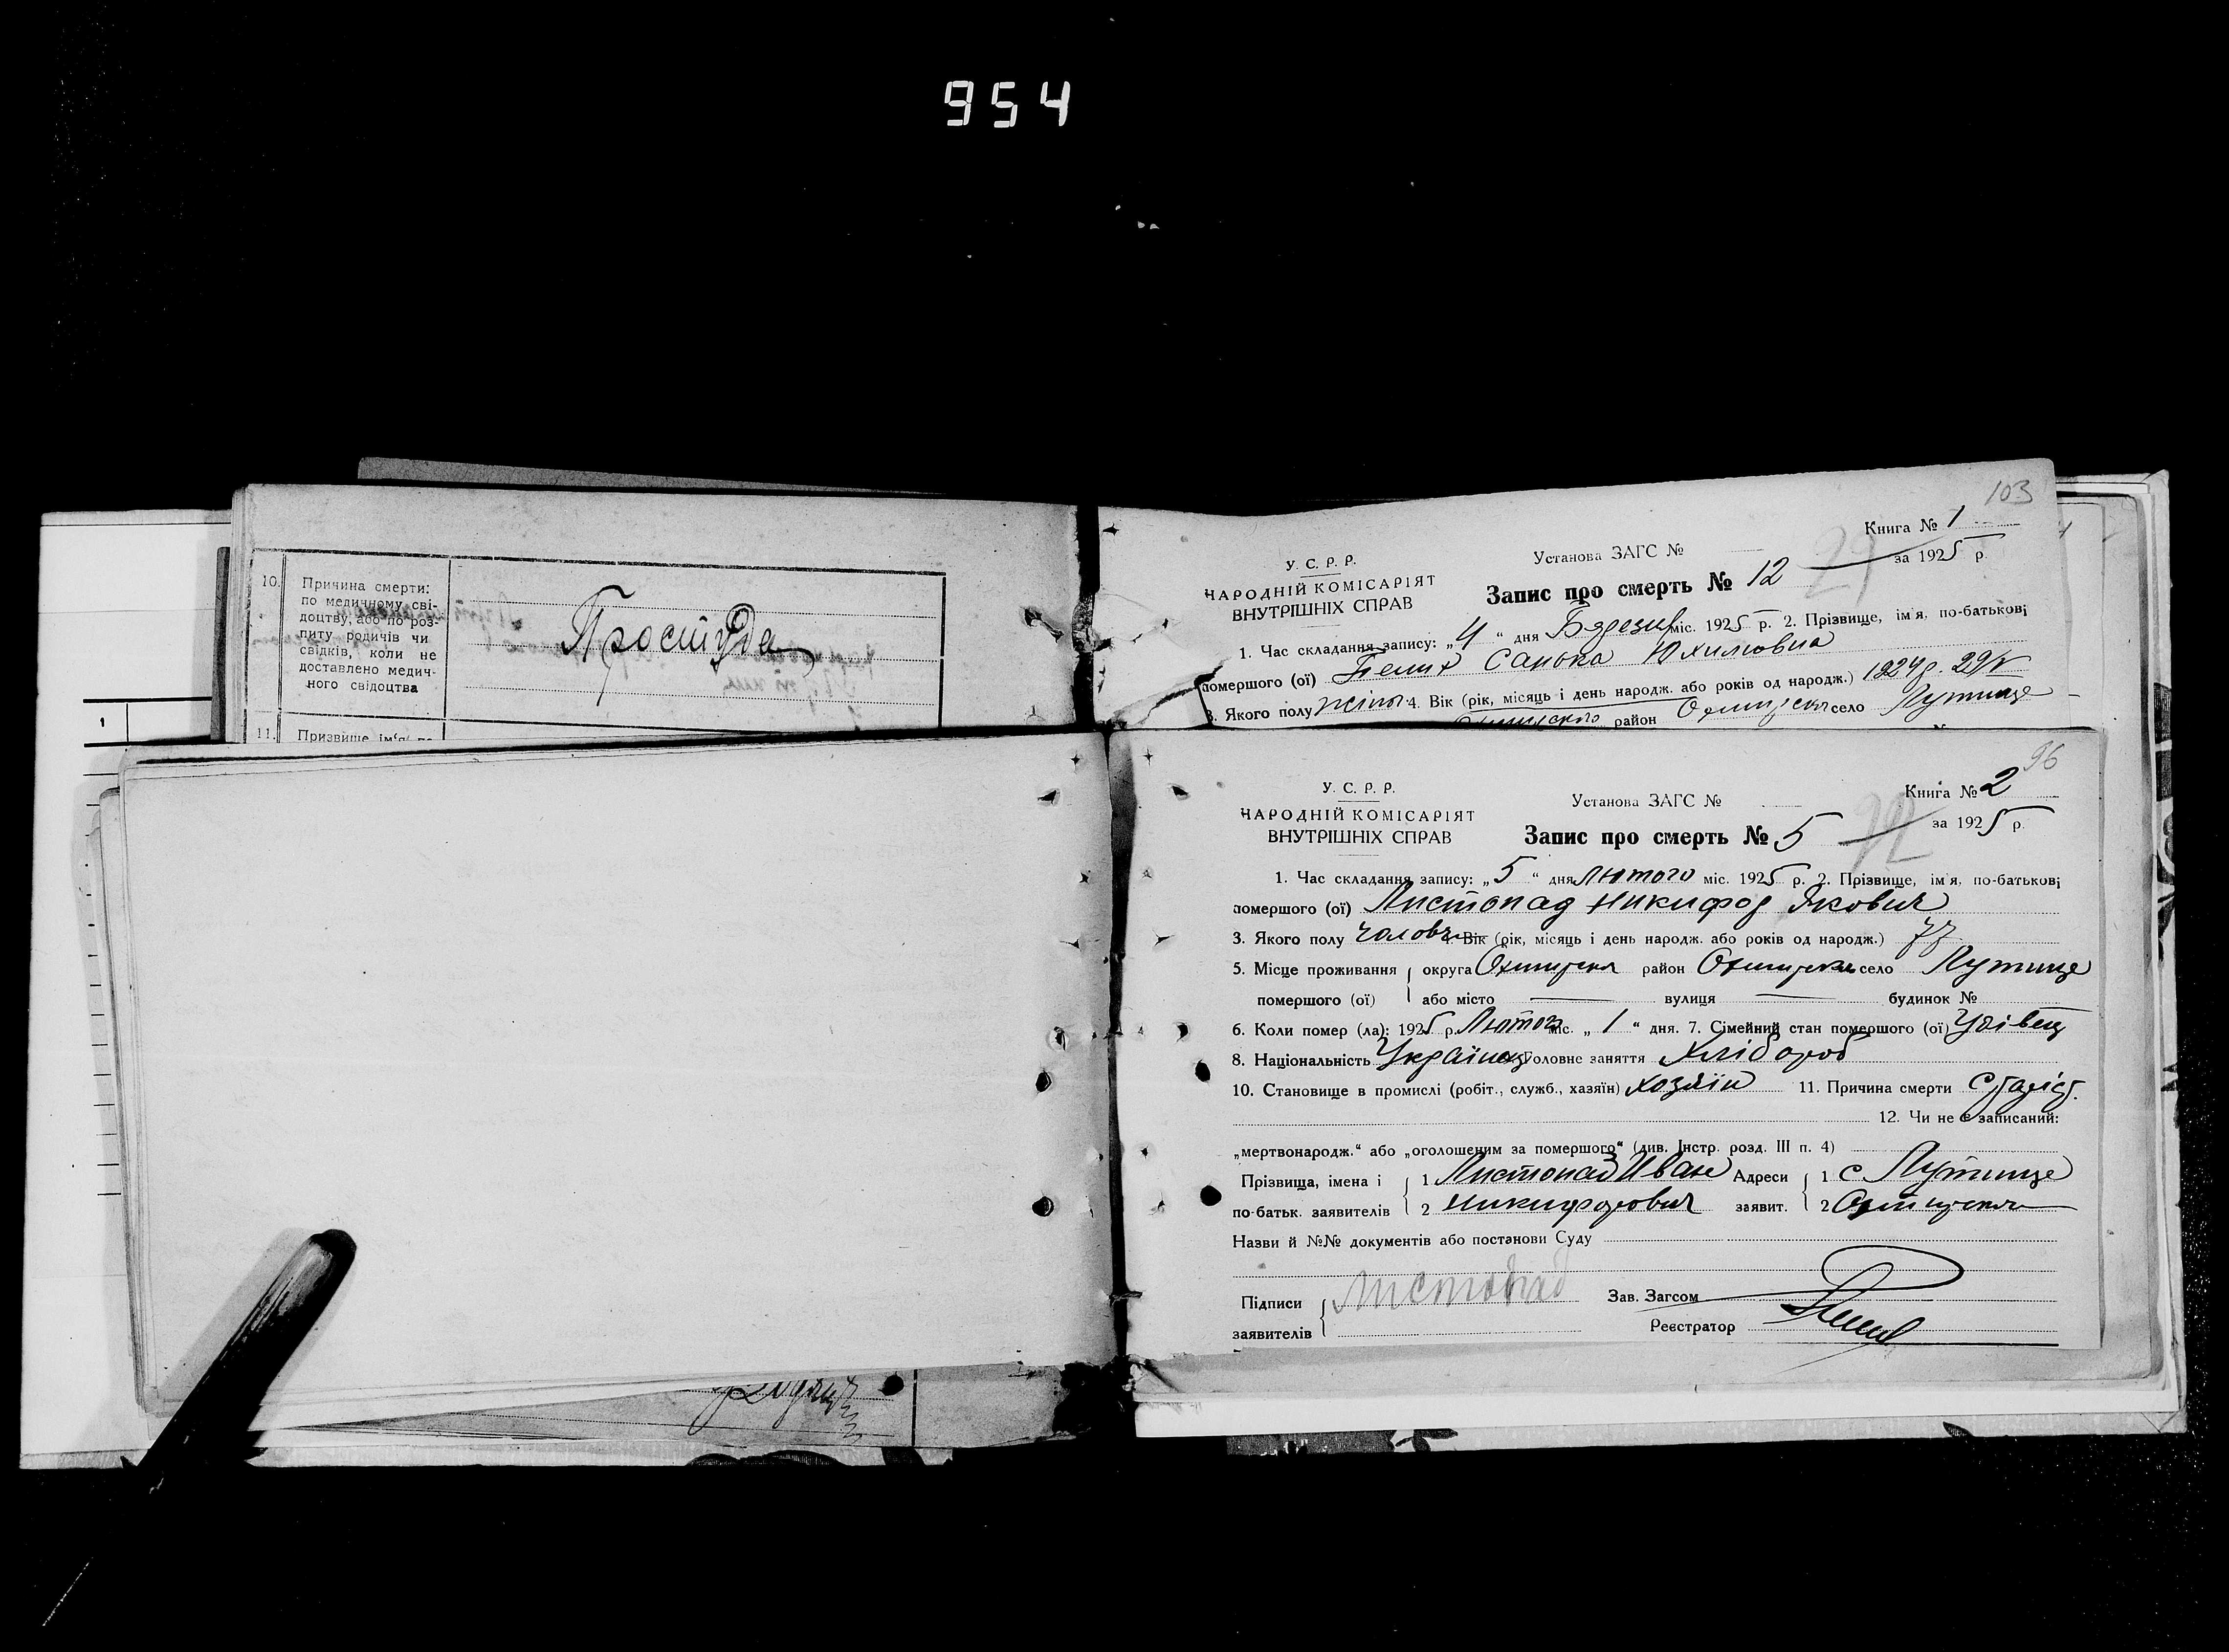 954
10. Причина смерти:
по медичному сві-
доцтву, або по роз-
питу родичів чи
свідків, коли не
доставлено медич-
ного свідоцтва
Простуда
11. Призвище, ім'я, по-
1
103
Книга № 1
У. С. Р. Р.
Установа ЗАГС №
за 1925 р.
НАРОДНІЙ КОМІСАРІЯТ
ВНУТРІШНІХ СПРАВ
Запис про смерть № 12
1. Час складання запису: „4“ дня Березня міс. 1925 р. 2. Прізвище, ім'я, по-батькові
помершого (ої) Белих Санька Юхимовна
3. Якого полу жіноч 4. Вік (рік, місяць і день народж. або років од народж.) 1924 р. 29/V
район село Лутище
96
У. С. Р. Р.
Установа ЗАГС №
Книга № 2
НАРОДНІЙ КОМІСАРІЯТ
ВНУТРІШНІХ СПРАВ
Запис про смерть № 5
за 1925 р.
1. Час складання запису: „5“ дня лютого міс. 1925 р. 2. Прізвище, ім'я, по-батькові
помершого (ої) Листопад Никифор Якович
3. Якого полу чоловч Вік (рік, місяць і день народж. або років од народж.) 77
5. Місце проживання округа Охтирська район Охтирськ село Лутище
помершого (ої) або місто вулиця будинок №
6. Коли помер (ла): 1925 р. Лютого міс. „1“ дня. 7. Сімейний стан помершого (ої) Удівець
8. Національність Українець Головне заняття Хлібороб
10. Становище в промислі (робіт., служб., хазяїн) хозяїн 11. Причина смерти старіст.
12. Чи не є записаний:
„мертвонародж.“ або „оголошеним за помершого“ (див. Інстр. розд. III п. 4)
Прізвища, імена і 1 Листопад Иван Адреси 1 с Лутище
по-батьк. заявителів 2 Никифорович заявит. 2 Охтирська
Назви й №№ документів або постанови Суду
Підписи листопад Зав. Загсом
заявителів Реєстратор